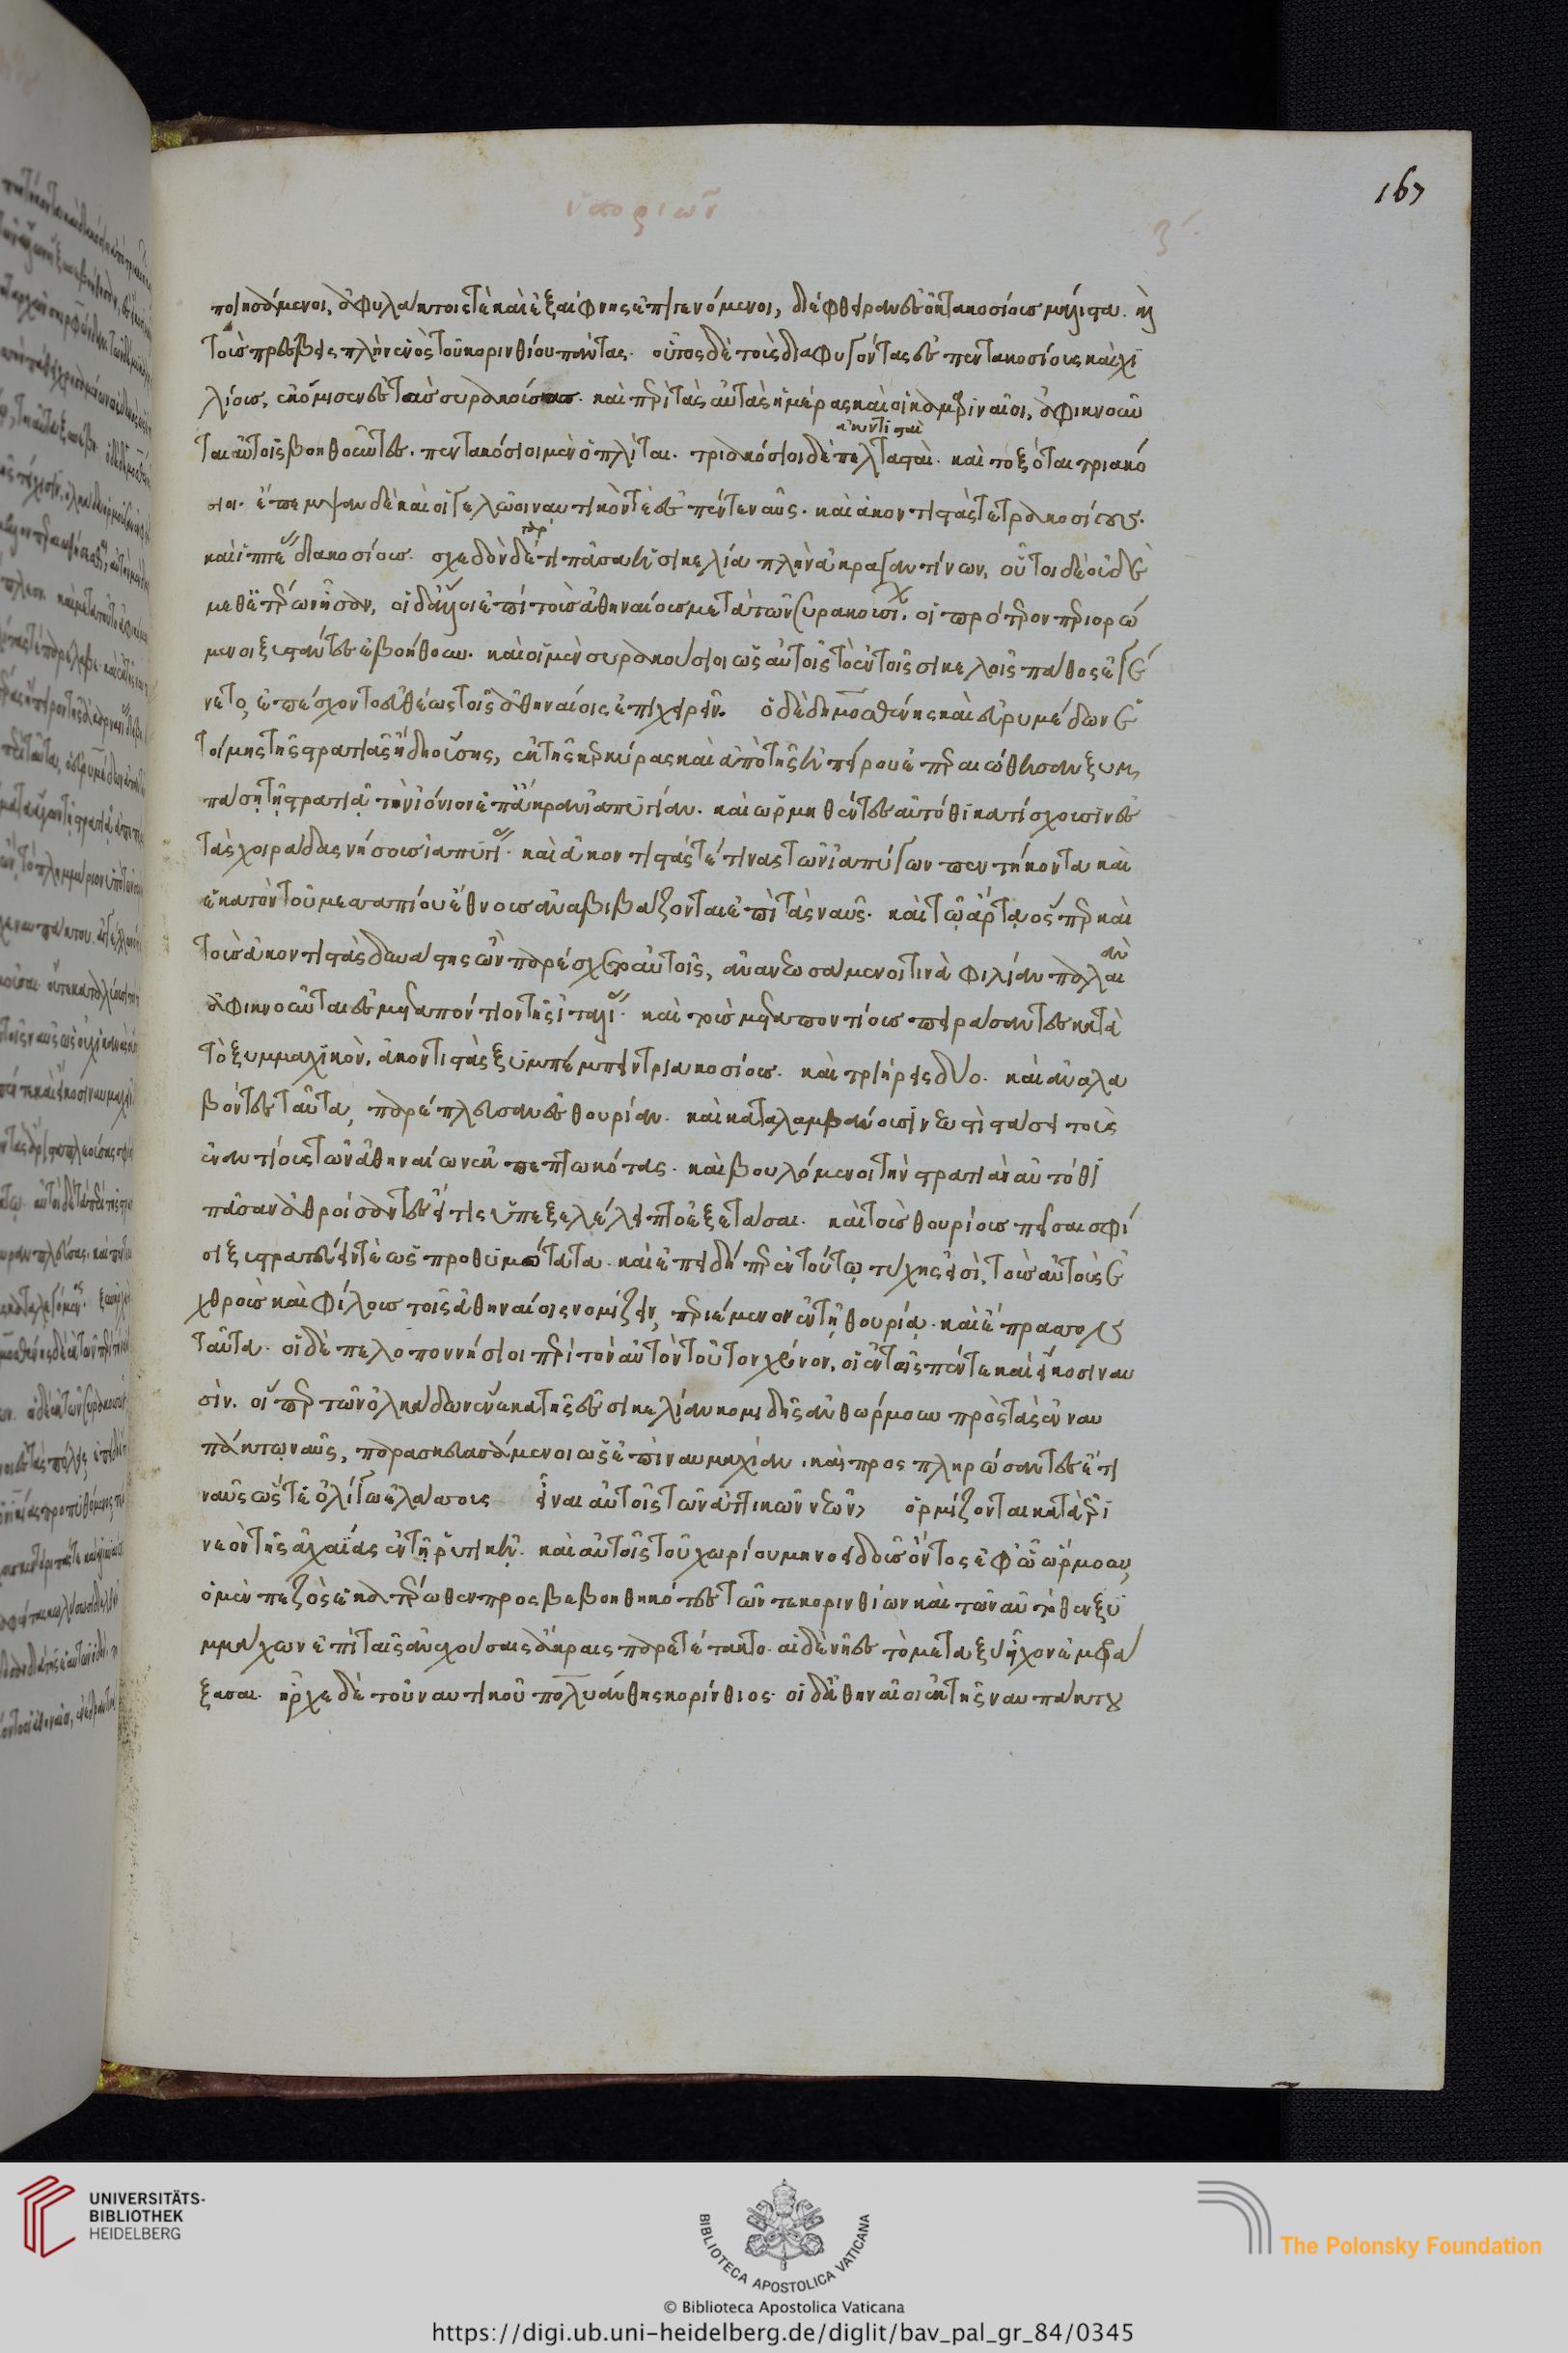 ἱστοριῶν
ζ´.
167
ποιησάμενοι, ἀφυλάκτοις τὲ καὶ ἐξαίφνης ἐπιγενόμενοι, διέφθειραν ἐς ὀκτακοσίους μάλιστα. καὶ
τοὺς πρέσβεις πλὴν ἑνὸς τοῦ κορινθίου πάντας. οὗτος δὲ τοὺς διαφυγόντας ἐς πεντακοσίους καὶ χι
λίους, ἐκόμισεν ἐς τὰς συρακούσας. καὶ περὶ τὰς αὐτὰς ἡμέρας καὶ οἱ καμαριναῖοι, ἀφικνοῦν
ται αὐτοῖς βοηθοῦντες. πεντακόσιοι μὲν ὁπλῖται. τριακόσιοι δὲ πελτασταὶ. καὶ τοξόται τριακό
ἀκοντισταὶ
σιοι. ἔπεμψαν δὲ καὶ οἱ γελῶοι ναυτικὸν τὲ ἐς πέντε ναῦς. καὶ ἀκοντιστὰς τετρακοσίους.
καὶ ἱππέας διακοσίους. σχεδὸν δέ τι πᾶσα ἡ σικελία πλὴν ἀκραγαντίνων, οὗτοι δὲ οὐδὲ
μεθ' ἑτέρων ἦσαν, οἱ δ' ἄλλοι ἐπὶ τοὺς ἀθηναίους μετὰ τῶν συρακουσίων. οἱ πρότερον περιορώ
μενοι ξυστάντες ἐβοήθουν. καὶ οἱ μὲν συρακούσιοι ὡς αὐτοῖς τὸ ἐν τοῖς σικελοῖς πάθος ἐγέ
νετο, ἐπέσχον τὸ εὐθέως τοῖς ἀθηναίοις ἐπιχειρεῖν. ὁ δὲ δημοσθένης καὶ εὐρυμέδων ἑ
τοίμης τῆς στρατιᾶς ἤδη οὔσης, ἐκ τῆς κερκύρας καὶ ἀπὸ τῆς ἠπείρου ἐπεραιώθησαν ξυμ
πάσῃ τῇ στρατιᾷ τὸν ἰόνιον ἐπ' ἄκραν ἰαπυγίαν. καὶ ὡρμηθέντες αὐτόθι κατίσχουσιν ἐς
τὰς χοιράδας νήσους ἰαπυγίας. καὶ ἀκοντιστάς τέ τινας τῶν ἰαπύγων πεντήκοντα καὶ
ἑκατὸν τοῦ μεσσαπίου ἔθνους ἀναβιβάζονται ἐπὶ τὰς ναῦς. καὶ τῷ ἄρτᾳ ὅσπερ καὶ
τοὺς ἀκοντιστὰς δυνάστης ὢν παρέσχεν αὐτοῖς, ἀνανεωσάμενοι τινὰ φιλίαν παλαιὰν
ἀφικνοῦνται ἐς μεταπόντιον τῆς ἰταλίας. καὶ τοὺς μεταποντίους πείσαντες κατὰ
τὸ ξυμμαχικὸν, ἀκοντιστὰς ξυμπέμπειν τριακοσίους. καὶ τριήρεις δύο. καὶ ἀναλα
βόντες ταῦτα, παρέπλευσαν ἐς θουρίαν. καὶ καταλαμβάνουσι νεωστὶ στάσει τοὺς
ἐναντίους τῶν ἀθηναίων ἐκπεπτωκότας. καὶ βουλόμενοι τὴν στρατιὰν αὐτόθι
πᾶσαν ἀθροίσαντες εἴ τις ὑπελέλειπτο ἐξετάσαι. καὶ τοὺς θουρίους πεῖσαι σφί
σι ξυστρατεύειν τὲ ὡς προθυμότατα. καὶ ἐπειδήπερ ἐν τούτῳ τύχης εἰσὶ, τοὺς αὐτοὺς ἐ
χθροὺς καὶ φίλους τοῖς ἀθηναίοις νομίζειν, περιέμενον ἐν τῇ θουρίᾳ. καὶ ἔπρασσον
ταῦτα. οἱ δὲ πελοποννήσιοι περὶ τὸν αὐτὸν τοῦτον χρόνον, οἱ ἐν ταῖς πέντε καὶ εἴκοσι ναυ
σὶν. οἵπερ τῶν ὁλκάδων ἕνεκα τῆς ἐς σικελίαν κομιδῆς ἀνθώρμουν πρὸς τὰς ἐν ναυ
πάκτῳ ναῦς, παρασκευασάμενοι ὡς ἐπὶ ναυμαχίαν. καὶ προσπληρώσαντες ἔτι
ναῦς ὥστε ὀλίγῳ ἐλάσσους εἶναι αὐτοῖς τῶν ἀττικῶν νεῶν, ὁρμίζονται κατὰ ἐρι
νεὸν τῆς ἀχαΐας ἐν τῇ ῥυπικῇ. καὶ αὐτοῖς τοῦ χωρίου μηνοειδοῦς ὄντος ἐφ' ᾧ ὥρμουν,
ὁ μὲν πεζὸς ἑκατέρωθεν προσβεβοηθηκότες τῶν τε κορινθίων καὶ τῶν αὐτόθεν ξυ
μμάχων ἐπὶ ταῖς ἀνεχούσαις ἄκραις παρετέτακτο. αἱ δὲ νῆες τὸ μεταξὺ εἶχον ἐμφρά
ξασαι. ἦρχε δὲ τοῦ ναυτικοῦ πολυάνθης κορίνθιος. οἱ δ' ἀθηναῖοι ἐκ τῆς ναυπάκτου
UNIVERSITÄTS-
BIBLIOTHEK
HEIDELBERG
BIBLIOTECA APOSTOLICA VATICANA
The Polonsky Foundation
© Biblioteca Apostolica Vaticana
https://digi.ub.uni-heidelberg.de/diglit/bav_pal_gr_84/0345